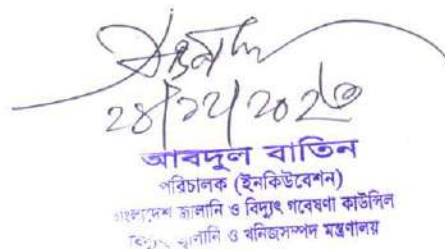 ২৪/১২/২০২৩
আবদুল বাতিন
পরিচালক (ইনকিউবেশন)
বাংলাদেশ জ্বালানি ও বিদ্যুৎ গবেষণা কাউন্সিল
বিদ্যুৎ, জ্বালানি ও খনিজসম্পদ মন্ত্রণালয়